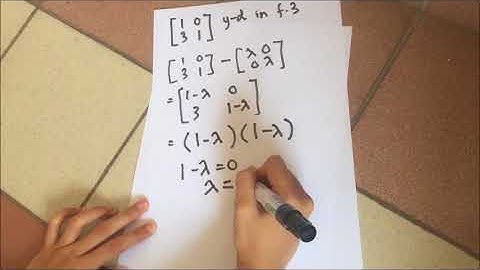 [1 0
3 1] y-d in f.3
[1 0
3 1] - [λ 0
0 λ]
= [1-λ 0
3 1-λ]
= (1-λ)(1-λ)
1-λ=0
λ=